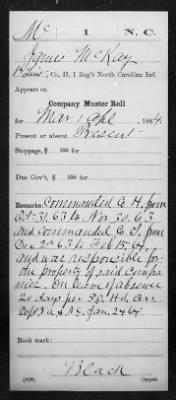 Mc 1 N.C.
James McKay
1" Lieut, Co. H, 1 Reg't North Carolina Inf.
Appears on
Company Muster Roll
for Mar & Apl, 1864
Present or absent Present
Stoppage, $ 100 for
Due Gov't, $ 100 for
Remarks: Commanded Co. H. from
Oct. 31. 63 to Nov. 30. 63
and commanded Co. I. from
Dec 2d 63 to Feb 15. 64,
and was responsible for
the property of said compa
nies. On leave of absence
20 days per S.O. Hd. Qrs.
Va & N.C. Jan. 24 64
Book mark:
Black
(858) Copyist.